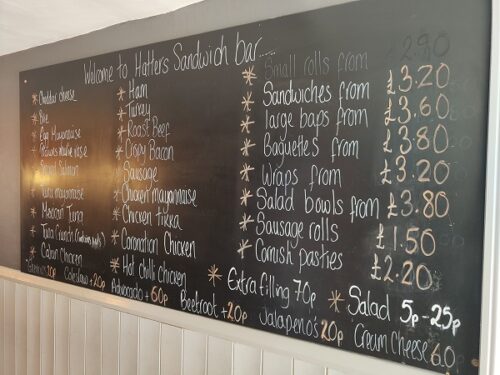 Welcome to Hatters Sandwich bar...
* Cheddar cheese
* Brie
* Egg Mayonnaise
* Prawns marie rose
* Salmon
* Tuna mayonnaise
* Mexican Tuna
* Tuna Crunch
* Cajun Chicken
* Ham
* Turkey
* Roast Beef
* Crispy Bacon
* Sausage
* Chicken mayonnaise
* Chicken tikka
* Coronation Chicken
* Hot chilli chicken
* Small rolls from 2.90
* Sandwiches from £3.20
* large baps from £3.60
* Baguettes from £3.80
* Wraps from £3.20
* Salad bowls from £3.80
* Sausage rolls £1.50
* Cornish pasties £2.20
* Extra filling 70p * Salad 5p-25p
10p Coleslaw +20p Advocado +60p Beetroot +20p Jalapeno's 20p Cream Cheese 60